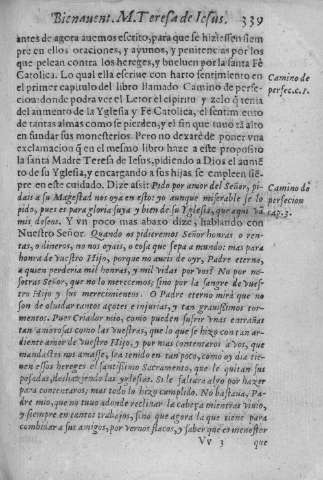 Bienauent. M. Teresa de Iesus. 339
antes de agora auemos escrito, para que se hiziessen siem
pre en ellos oraciones, y ayunos, y penitencias por los
que pelean contra los hereges, y bueluen por la santa Fè
Catolica. Lo qual ella escriue con harto sentimiento en
el primer capitulo del libro llamado Camino de perfe-
cion: donde podra ver el Letor el espiritu y zelo q̃ tenia
del aumento de la Yglesia y Fè Catolica, el sentimiento
de tantas almas como se pierden, y el fin que tuuo tã alto
en fundar sus monesterios. Pero no dexarè de poner vna
exclamacion q̃ en el mesmo libro haze a este proposito
la santa Madre Teresa de Iesus, pidiendo a Dios el aumẽ
to de su Yglesia, y encargando a sus hijas se empleen siẽ-
pre en este cuidado. Dize assi: Pido por amor del Señor, pi-
dais a su Magestad nos oya en esto: yo aunque miserable se lo
pido, pues es para gloria suya y bien de su Yglesia, que aqui vã
mis deseos. Y vn poco mas abaxo dize, hablando con
Nuestro Señor. Quando os pidieremos Señor honras o ren-
tas, o dineros, no nos oyais, o cosa que sepa a mundo: mas para
honra de vuestro Hijo, porque no aueis de oyr, Padre eterno,
a quien perderia mil honras, y mil vidas por vos? No por no-
sotras Señor, que no lo merecemos; sino por la sangre de vues-
tro Hijo y sus merecimientos. O Padre eterno mirà que no
son de oluidar tantos açotes e injurias, y tan grauissimos tor-
mentos. Pues Criador mio, como pueden sufrir vnas entrañas
tan amorosas como las vuestras, que lo que se hizo con tan ar-
diente amor de vuestro Hijo, y por mas contentaros a vos, que
mandastes nos amasse, sea tenido en tan poco, como oy dia tie-
nen essos hereges el santissimo Sacramento, que le quitan sus
posadas, deshaziendo las yglesias. Si le faltara algo por hazer
para contentaros, mas todo lo hizo cumplido. No bastaua, Pa-
dre mio, que no tuuo adonde reclinar la cabeça mientras viuio,
y siempre en tantos trabajos, sino que agora las que tiene para
combinar a sus amigos, por vernos flacos, y saber que es menester
Vv 3 que
Camino de
perfec. c. 1.
Camino de
perfecion
cap. 3.